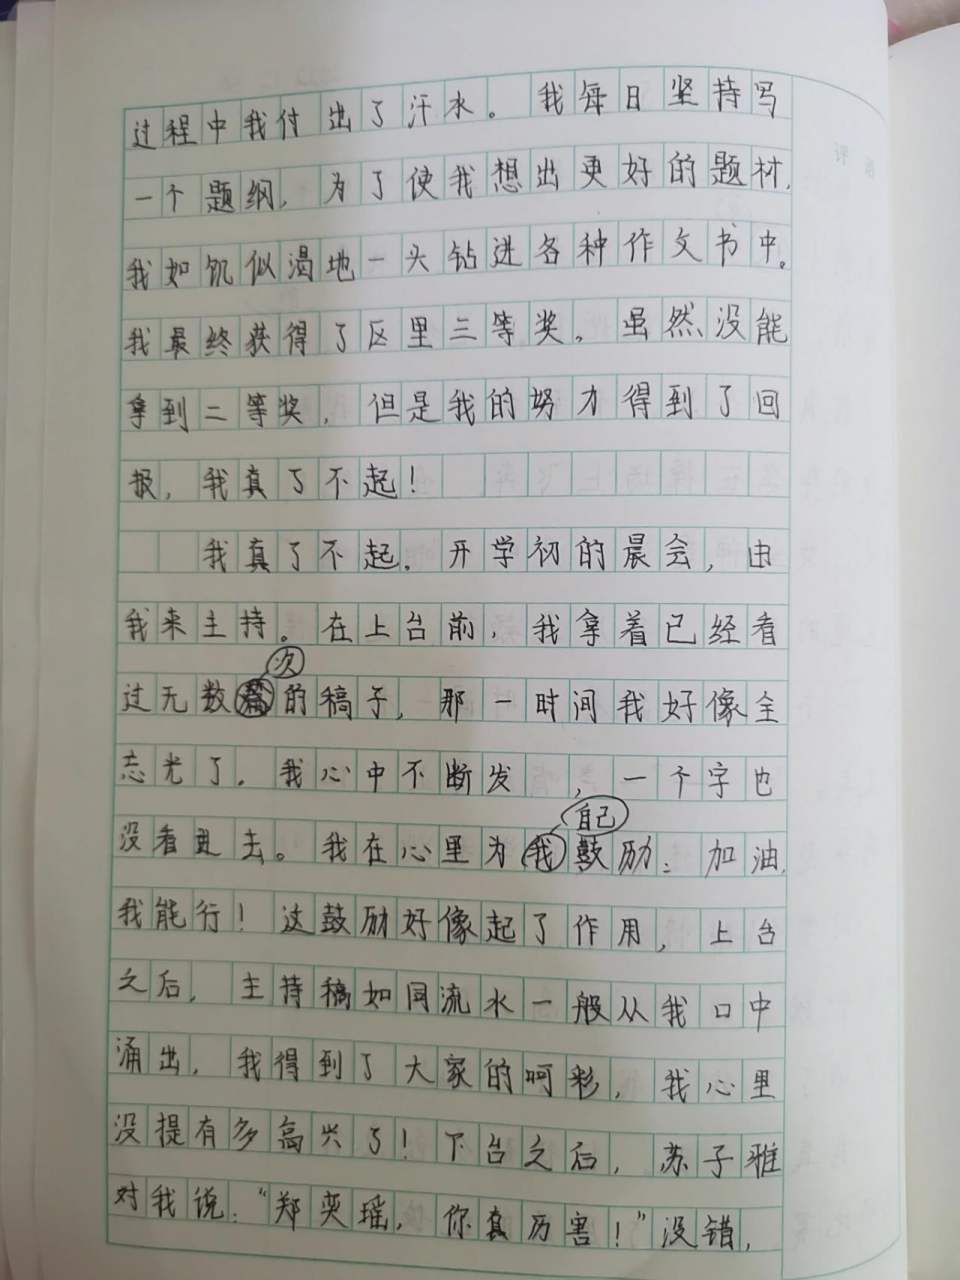 过程中我付出了汗水。我每日坚持写
一个题纲,为了使我想出更好的题材,
我如饥似渴地一头钻进各种作文书中。
我最终获得了区里三等奖。虽然没能
拿到二等奖,但是我的努力得到了回
报,我真了不起!
我真了不起。开学初的晨会,由
我来主持。在上台前,我拿着已经看
次
过无数的稿子,那一时间我好像全
忘光了。我心中不断发,一个字也
自己
没看进去。我在心里为我鼓励:加油,
我能行!这鼓励好像起了作用,上台
之后,主持稿如同流水一般从我口中
涌出,我得到了大家的呵彩,我心里
没提有多高兴了!下台之后,苏子雅
对我说:“郑奕瑶,你真厉害!”没错,